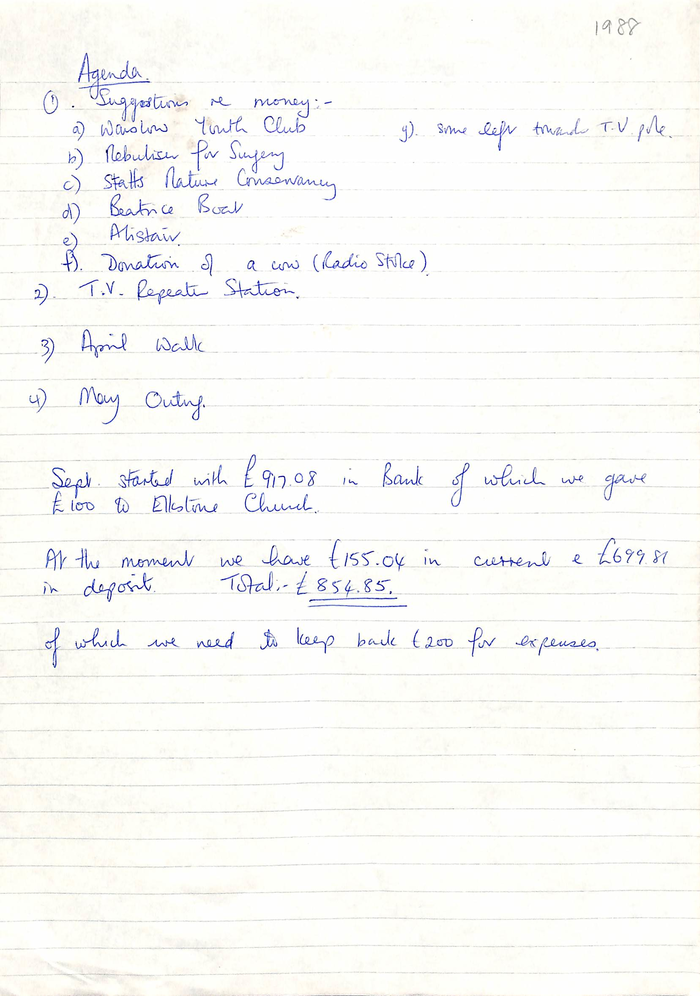 1988
Agenda.
1). Suggestions re money:-
a) Warslow Youth Club
g). some left towards T.V. pole.
b) Nebuliser for Surgery
c) Staffs Nature Conservancy
d) Beatrice Boat
e) Alistair.
f). Donation of a cow (Radio Stoke).
2). T.V. Repeater Station.
3) April Walk
4) May Outing.
Sept. started with £917.08 in Bank of which we gave
£100 to Elkstone Church.
At the moment we have £155.04 in current & £699.81
in deposit. Total:- £854.85.
of which we need to keep back £200 for expenses.